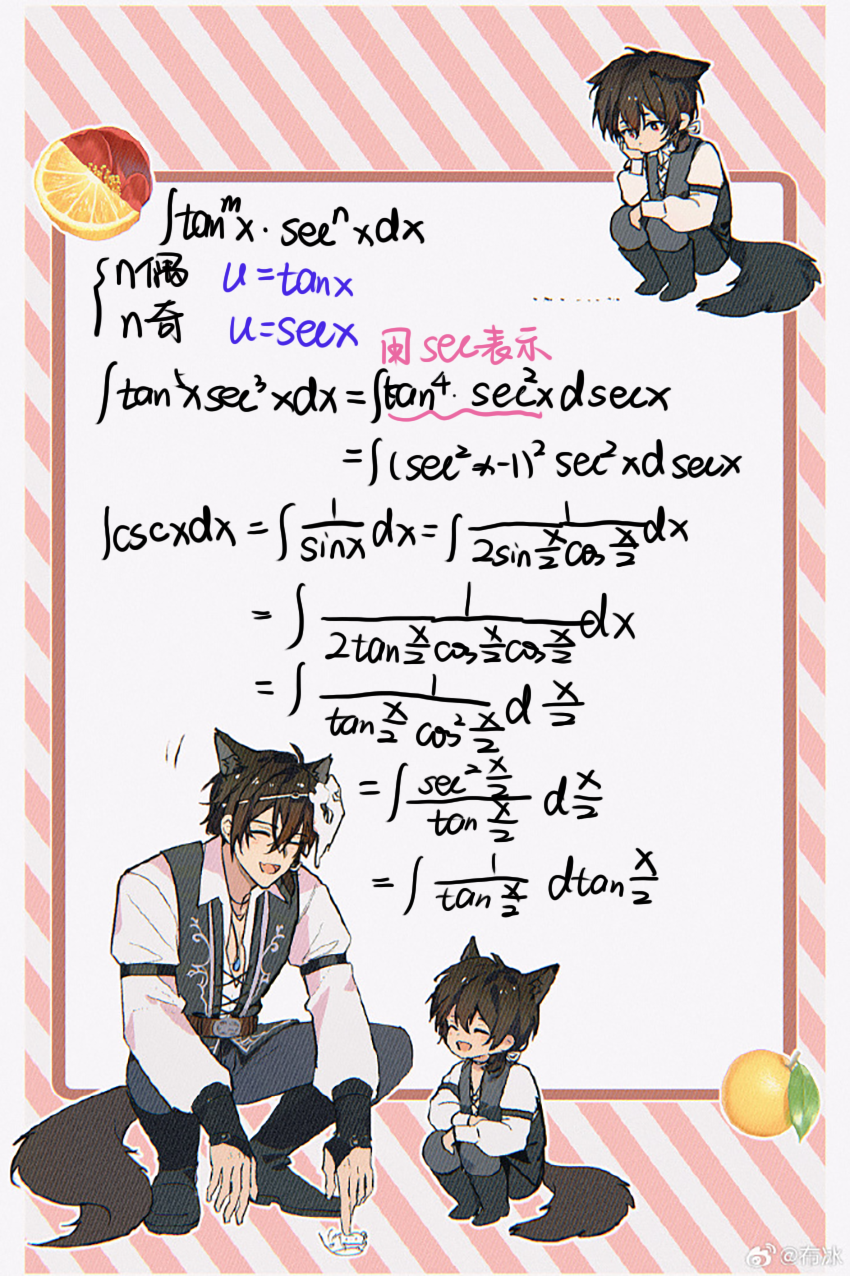 ∫tan^m x · sec^n x dx
{ n偶 u=tanx
n奇 u=secx
用sec表示
∫tan^5 x sec^3 x dx = ∫tan^4 · sec^2 x d secx
= ∫(sec^2 x-1)^2 sec^2 x d secx
∫cscx dx = ∫ 1/sinx dx = ∫ 1/(2sin x/2 cos x/2) dx
= ∫ 1/(2tan x/2 cos x/2 cos x/2) dx
= ∫ 1/(tan x/2 cos^2 x/2) d x/2
= ∫ (sec^2 x/2)/(tan x/2) d x/2
= ∫ 1/(tan x/2) dtan x/2
@布冰